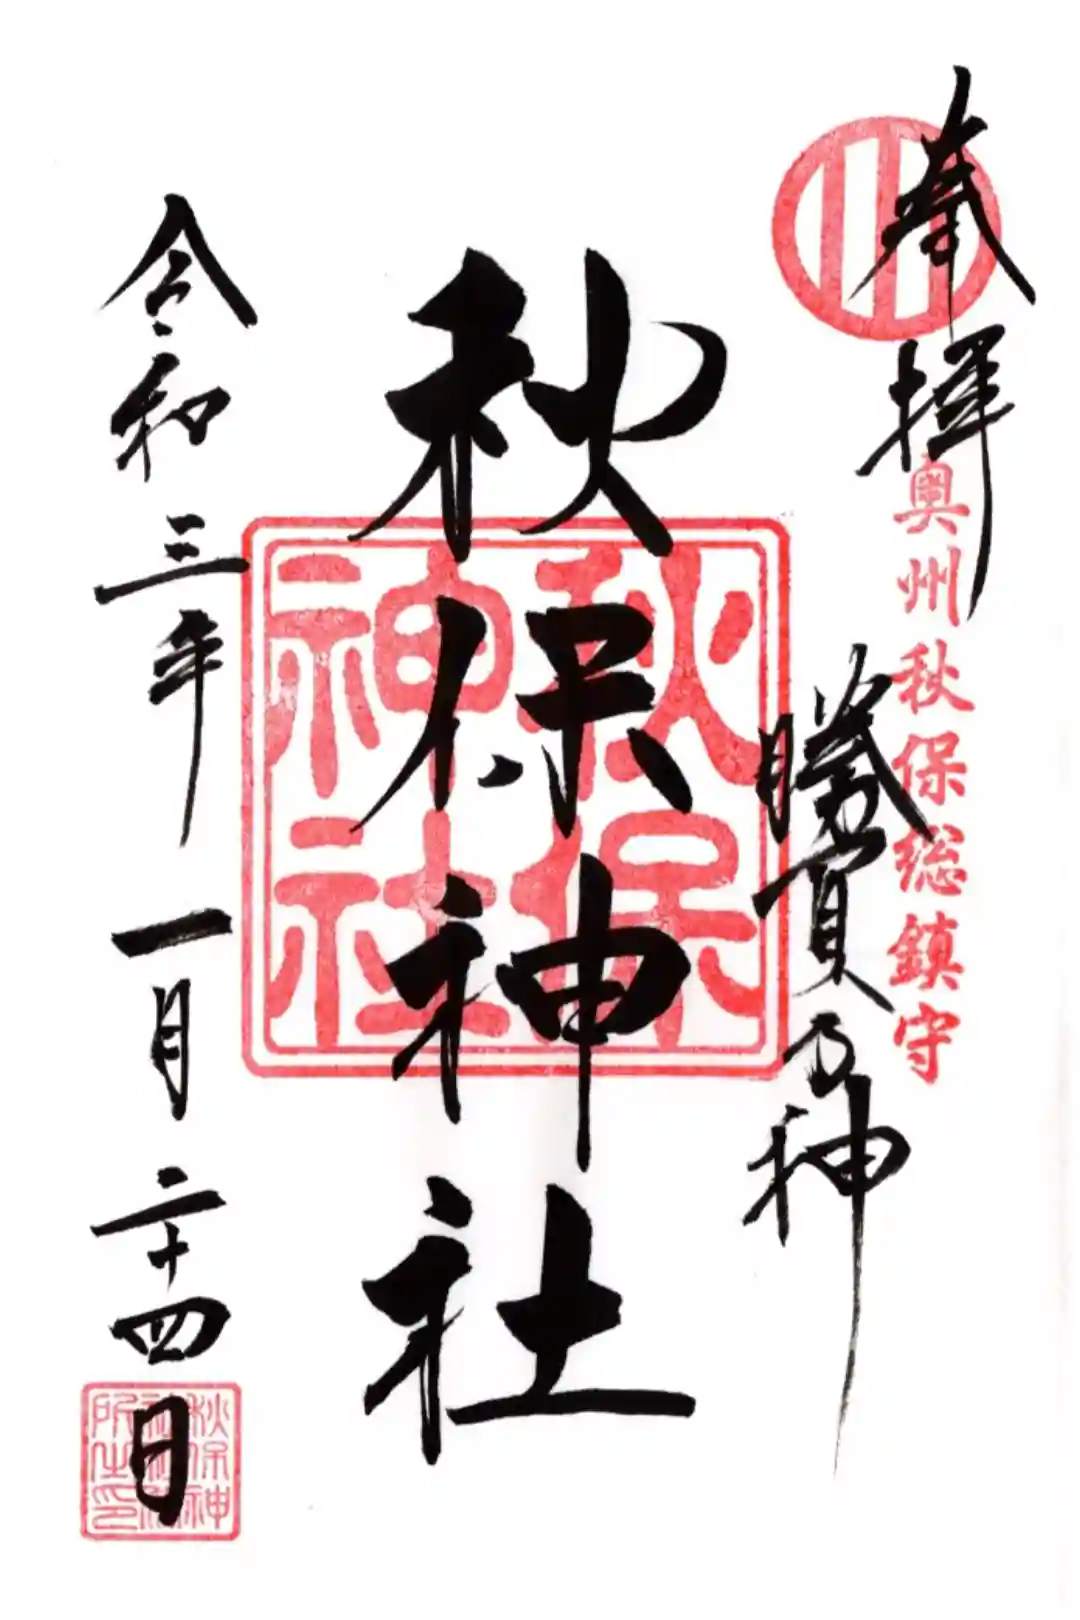 奉拝
奥州秋保総鎮守
勝負乃神
秋保神社
秋保
神社
令和三年 一月二十四日
秋保神
社社務
所之印